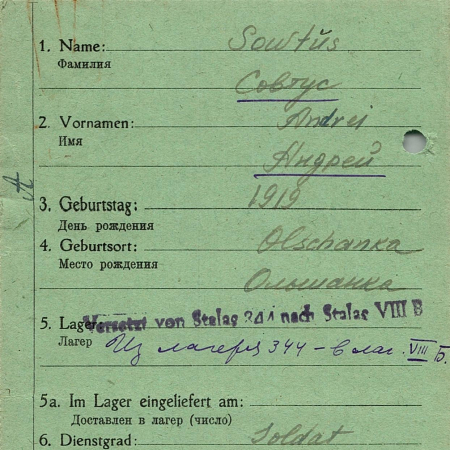 1. Name: Sowtus
Фамилия
Совтус
2. Vornamen: Andrei
Имя
Андрей
3. Geburtstag: 1919
День рождения
4. Geburtsort: Olschanka
Место рождения
Ольшанка
5. Lager: Versetzt von Stalag 344 nach Stalag VIII B
Лагерь Из лагеря 344 - в лаг. VIII Б.
5a. Im Lager eingeliefert am:
Доставлен в лагерь (число)
6. Dienstgrad: Soldat